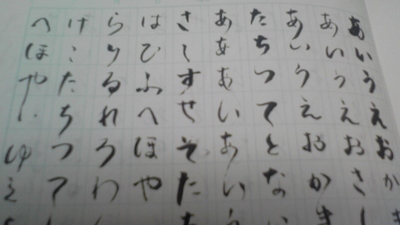 あいうえおか
あいうえおさし
あいうえおかき
たちつてとない
あああいあいう
さしすせそたち
はひふへほや
らりるれろわ
けこたちつて
へほやいゆえ